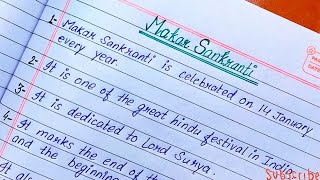 Makar Sankranti
1- Makar Sankranti is celebrated on 14 January
every year.
2- It is one of the great hindu festival in India
3- It is dedicated to Lord Surya.
4- It marks the end of the
and the beginning
It al
Subscribe